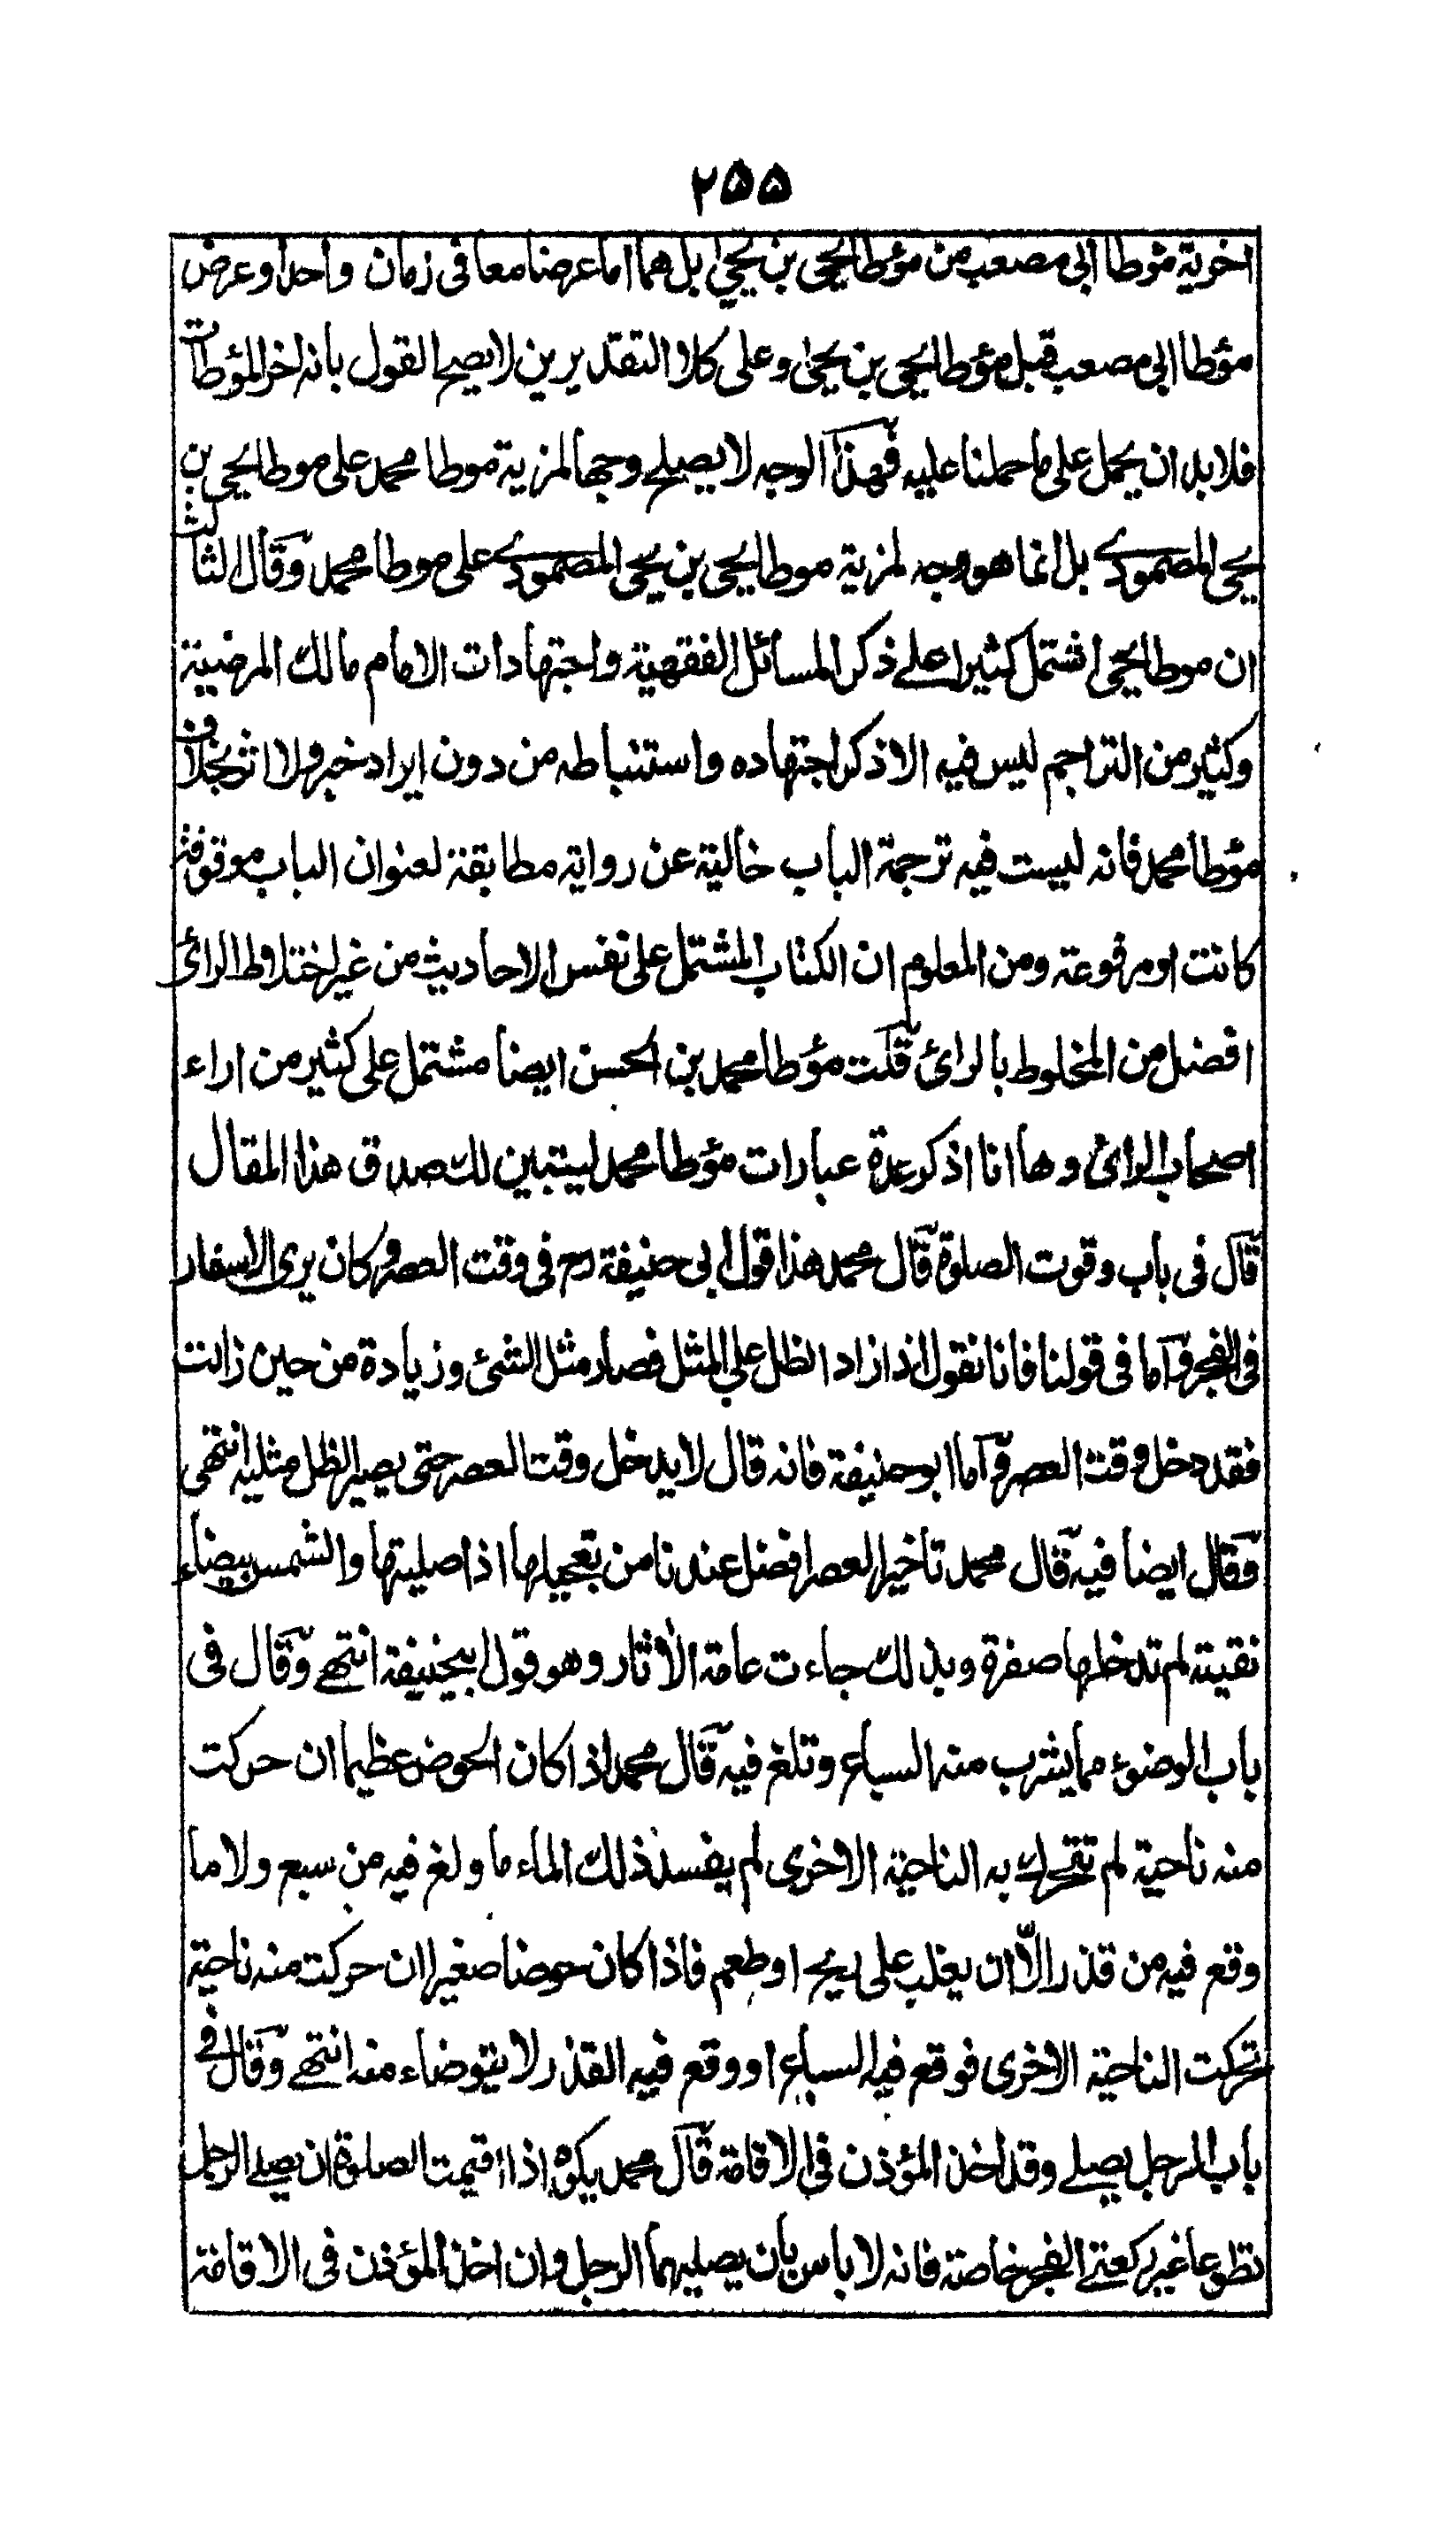 ۲۵۵
اخرية مؤطا ابى مصعب من مؤطا يحيى بن يحيىٰ بل هما اما عرضا معا فى زمان واحد او عرض
مؤطا ابى مصعب قبل مؤطا يحيى بن يحيىٰ وعلى كلا التقديرين لا يصح القول بانه اخر المؤطات
فلا بد ان يحمل على ما حملنا عليه فهذا الوجه لا يصلح وجها لمزية موطا محمد على موطا يحيى بن
يحيى المصمودے بل انما هو وجه لمزية موطا يحيى بن يحيى المصمودے على موطا محمد وقال الثالث
ان موطا يحيى اشتمل كثيرا علے ذكر المسائل الفقهية واجتهادات الامام مالك المرضية
وكثير من التراجم ليس فيه الا ذكر اجتهاده واستنباطه من دون ايراد خبر ولا اثر بخلاف
مؤطا محمد فانه ليست فيه ترجمة الباب خالية عن رواية مطابقة لعنوان الباب موقوفة
كانت او مرفوعة ومن المعلوم ان الكتاب المشتمل على نفس الاحاديث من غير اختلاط الرائ
افضل من المخلوط بالرائ قلت مؤطا محمد بن الحسن ايضا مشتمل على كثير من اراء
اصحاب الرائ وها انا اذكر عدة عبارات مؤطا محمد ليتبين لك صدق هذا المقال
قال فى باب وقوت الصلوة قال محمد هذا قول ابى حنيفة رح فى وقت العصر وكان يرى الاسفار
فى الفجر واما فى قولنا فانا نقول اذا زاد الظل على المثل فصار مثل الشئ وزيادة من حين زالت
فقد دخل وقت العصر واما ابو حنيفة فانه قال لا يدخل وقت العصر حتى يصير الظل مثليه انتهى
وقال ايضا فيه قال محمد تاخير العصر افضل عندنا من تعجيلها اذا صليتها والشمس بيضاء
نقية لم تدخلها صفرة وبذلك جاءت عامة الاٰثار وهو قول ابيحنيفة انتهے وقال فى
باب الوضوء مما يشرب منه السباع وتلغ فيه قال محمد اذا كان الحوض عظيما ان حركت
منه ناحية لم تتحرك به الناحية الاخرى لم يفسد ذلك الماء ما ولغ فيه من سبع ولا ما
وقع فيه من قذر الّا ان يغلب على ريح او طعم فاذا كان حوضا صغيرا ان حركت منه ناحية
تحركت الناحية الاخرى فوقع فيه السباع او وقع فيه القذر لا يتوضاء منه انتهے وقال فے
باب الرجل يصلے وقد اخذ المؤذن فى الاقامة قال محمد يكره اذا اقيمت الصلوة ان يصلے الرجل
تطوعا غير ركعتے الفجر خاصة فانه لا باس بان يصليهما الرجل وان اخذ المؤذن فى الاقامة